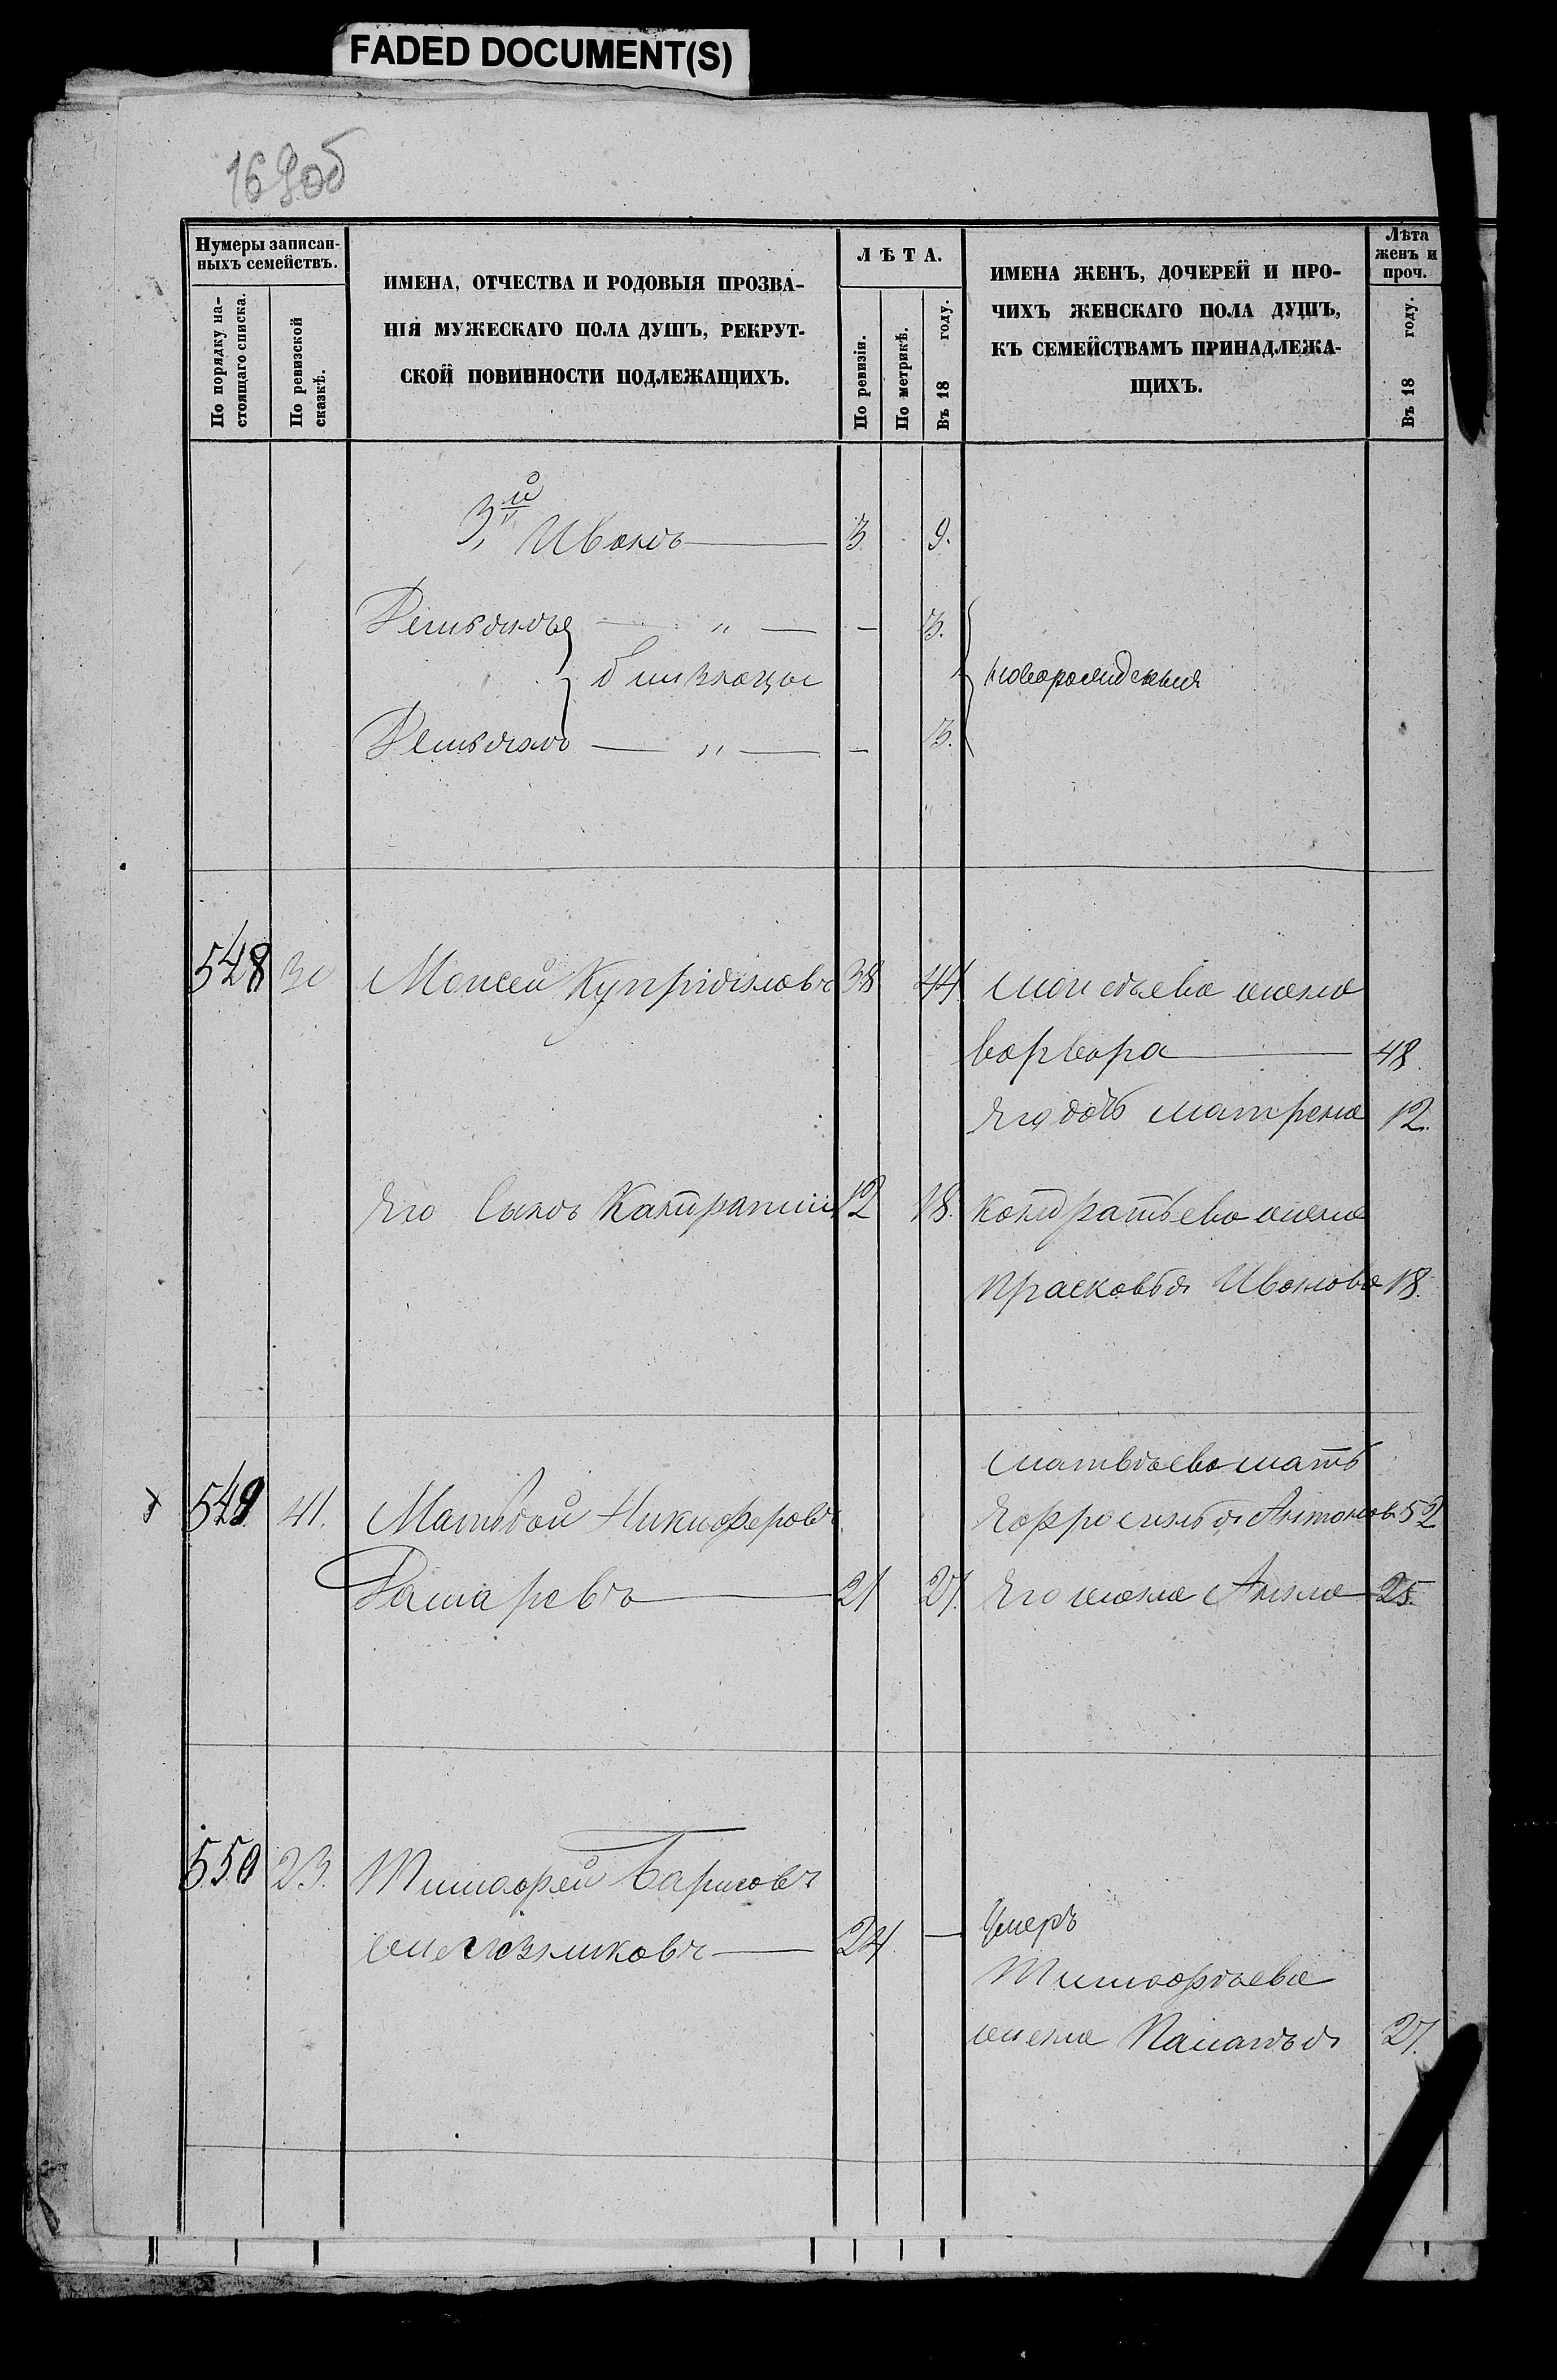 FADED DOCUMENT(S)
169об
Нумеры записан-
ныхъ семействъ.
По порядку на-
стоящаго списка.
По ревизской
сказкѣ.
ИМЕНА, ОТЧЕСТВА И РОДОВЫЯ ПРОЗВА-
НІЯ МУЖЕСКАГО ПОЛА ДУШЪ, РЕКРУТ-
СКОЙ ПОВИННОСТИ ПОДЛЕЖАЩИХЪ.
ЛѢТА.
По ревизіи.
По метрикѣ.
Въ 18 году.
ИМЕНА ЖЕНЪ, ДОЧЕРЕЙ И ПРО-
ЧИХЪ ЖЕНСКАГО ПОЛА ДУШЪ,
КЪ СЕМЕЙСТВАМЪ ПРИНАДЛЕЖА-
ЩИХЪ.
Лѣта
женъ и
проч.
Въ 18 году.
3й Иванъ 3 9.
— „ — — 3.
близнацы новорожденыя
— „ — — 3.
548 30 Моисей Купріяновъ 38 44 Моисѣева жена
варвара 48.
Его дочь матрена 12.
Его Сынъ Кандратий 12 18. Кондратьева жена
Прасковья Иванова 18.
Матвѣева мать
549 41. Матвѣй Никифоровъ Ефросинья Антонов. 52
21 27. Его жена Анна 25.
550 23. Тимофей Барисовъ
24 — Умеръ
Тимофѣева
жена 27.